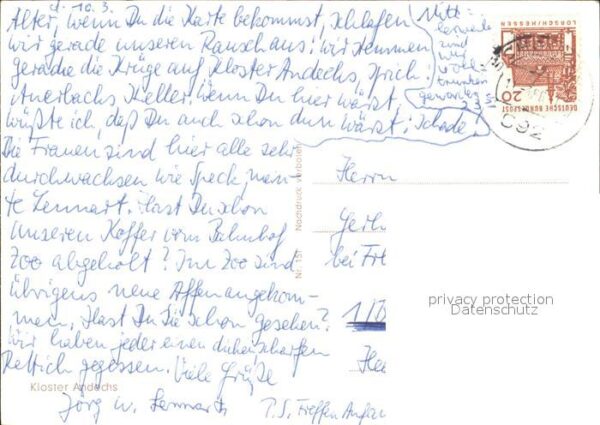 d. 10. 3.
Alter, wenn Du die Karte bekommst, schlafen
wir gerade unseren Rausch aus! Wir stemmen
gerade die Krüge auf Kloster Andechs, sprich:
Auerbachs Keller. Wenn Du hier wärst,
wüßte ich, daß Du auch schon dun wärst; schade!
Mitt-
lerweile
sind
wir
voll
trunken
geworden
Die Frauen sind hier alle sehr
durchwachsen wie Speck, nann-
te Lennart. Hast Du schon
unseren Koffer vom Bahnhof
Zoo abgeholt? Im Zoo sind
übrigens neue Affen angekom-
men. Hast Du sie schon gesehen?
Wir haben jeder einen dicken, scharfen
Rettich gegessen. Viele Grüße
Jörg u. Lennart
P.S. Treffen Anfan
Kloster Andechs
Nr. 151 Nachdruck verboten
Herrn
bei
1/B
LORSCH/HESSEN
20
DEUTSCHE BUNDESPOST
privacy protection
Datenschutz